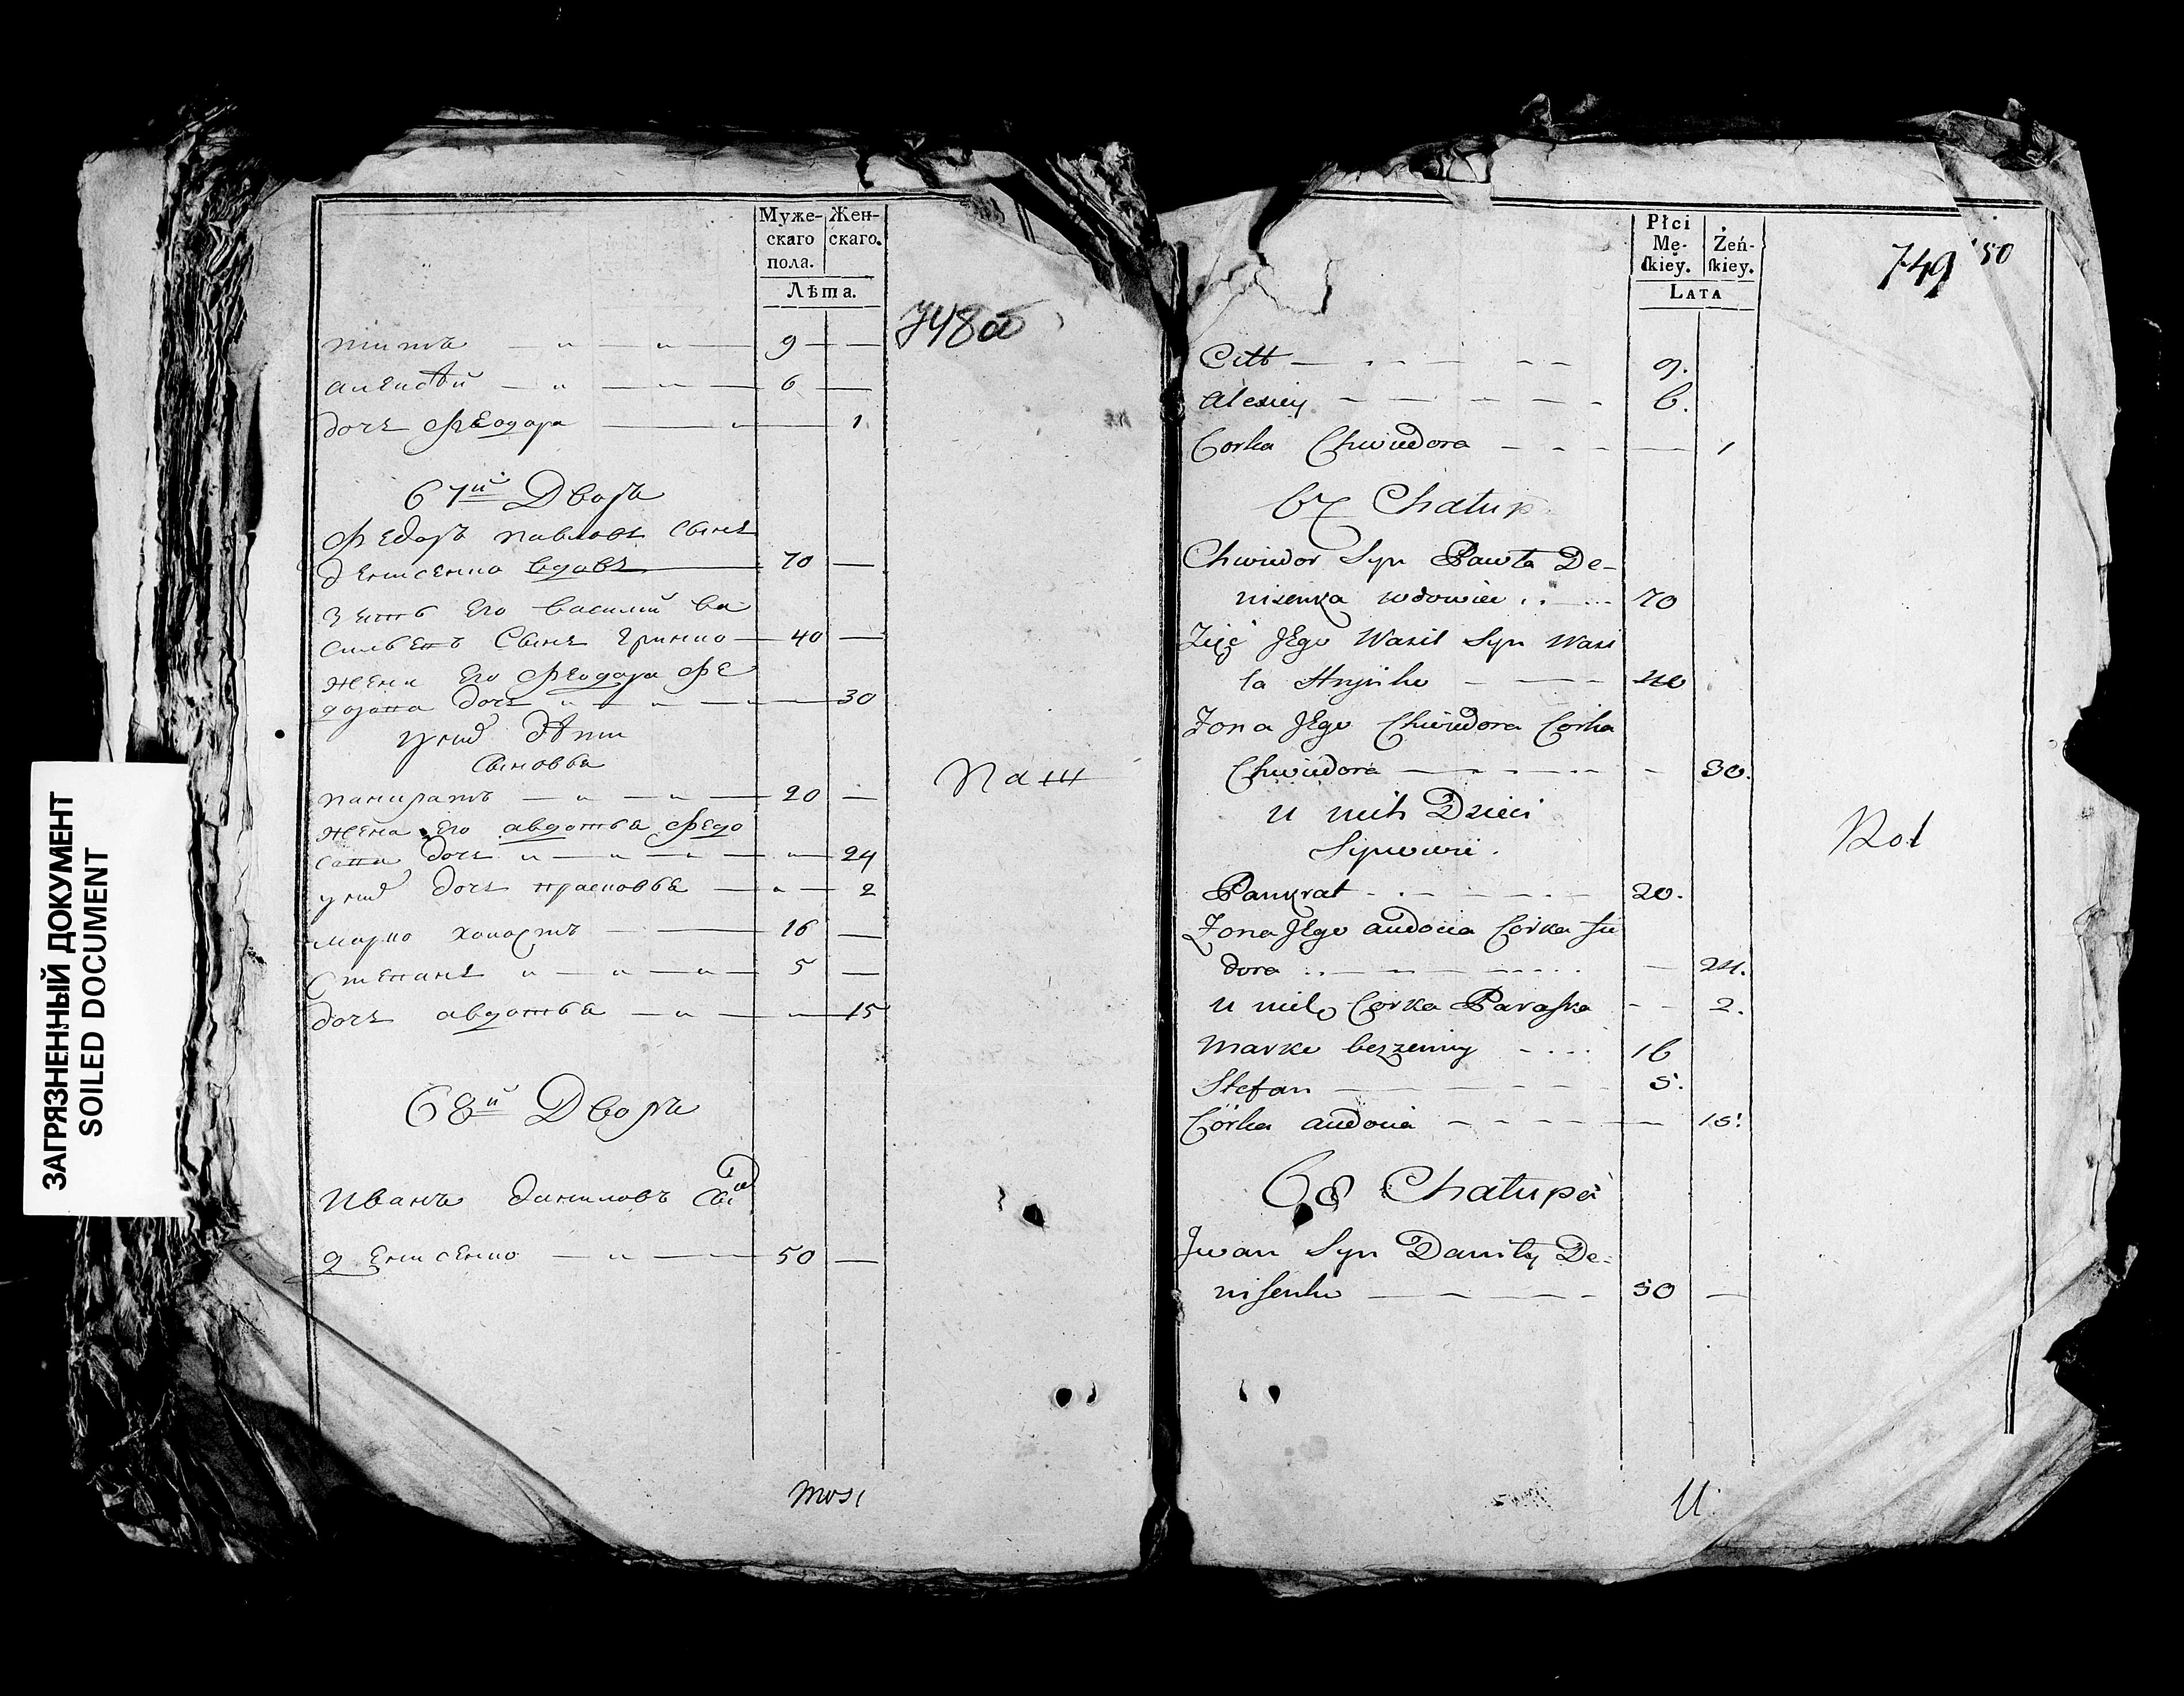 ЗАГРЯЗНЕННЫЙ ДОКУМЕНТ
SOILED DOCUMENT
Муже- Жен-
скаго скаго.
пола.
Лѣта.
748об
титъ 9 —
алексѣй 6 —
дочь Феодора 1
67й Дворъ
Федоръ павловъ сынъ
денисенко вдовъ 70 —
зять Его василий ва
сильевъ Сынъ гринко 40 —
жена Его Феодора Фе
дорова дочь 30
у них дѣти
Сыновья
панкратъ 20 —
жена Его авдотья Федо
рова дочь 24
у них дочь прасковья 2
марко холостъ 16 —
Степанъ 5 —
дочь авдотья 15
68й Дворъ
Иванъ даниловъ Сы
денисенко 50 —
Płci
Mę- Żeń-
skiey. skiey.
LATA
749 50
Citt 9.
Alexiey 6.
Corka Chwiedora — 1
67 Chałup
Chwiedor Syn Pawła De-
nisenka wdowiec 70
Zięć Jego Wasil Syn Wasi
la Hrynko 40
Żona Jego Chwiedora Corka
Chwiedora — 30.
u nich Dzieci
Synowie.
Pankrat 20.
Żona Jego audocia Corka
dora — 24.
u nich Corka Paraska 2.
Marko bezzenny 16
Stefan 5.
Córka audocia — 15.
68 Chałupa
Jwan Syn Daniły De-
nisenko 50 —